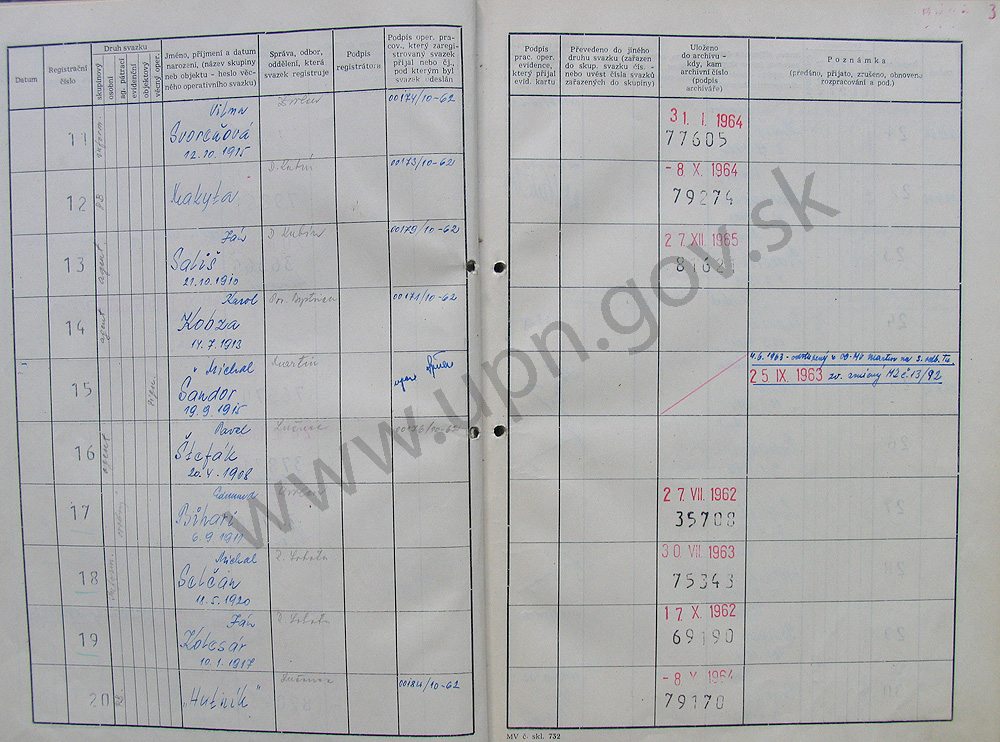 Datum
Registrační číslo
Druh svazku
skupinový
osobní
ag. pátrací
evidenční
objektový
věcný oper.
Jméno, příjmení a datum
narození, (název skupiny
neb objektu - heslo věc-
ného operativního svazku)
Správa, odbor,
oddělení, která
svazek registruje
Podpis
registrátora
Podpis oper. pra-
cov., který zaregi-
strovaný svazek
přijal nebo čj.,
pod kterým byl
svazek odeslán
Podpis
prac. oper.
evidence,
který přijal
evid. kartu
Převedeno do jiného
druhu svazku (zařazen
do skup. svazku čís. -
nebo uvést čísla svazků
zařazených do skupiny)
Uloženo
do archivu -
kdy, kam
archivní číslo
(podpis
archiváře)
Poznámka
(předáno, přijato, zrušeno, obnovena
rozpracování a pod.)
3
11 Vilma 00174/10-62 31. I. 1964
Svoreňová 77605
12.10.1915
12 D. Kubín 00173/10-62 - 8. X. 1964
Makyta 79274
13 agent Ján D. Kubín 00179/10-62 27. XII. 1965
Sališ
21.10.1910
14 agent Karol 00171/10-62
Kobza
14.7.1913
15 Michal Martin 4.6.1963
Šandor 25. IX. 1963
19.9.1915
16 agent Pavel Lučenec 00176/10-62
Štefák
20.4.1908
17 27. VII. 1962
Bihari 35708
6.9.1911
18 Michal 30. VII. 1963
Selčan 75343
11.5.1920
19 Ján 17. X. 1962
Kolesár 69190
10.1.1917
20 Lučenec 00184/10-62 - 8. X. 1964
„Hutník" 79170
MV č. skl. 732
www.upn.gov.sk